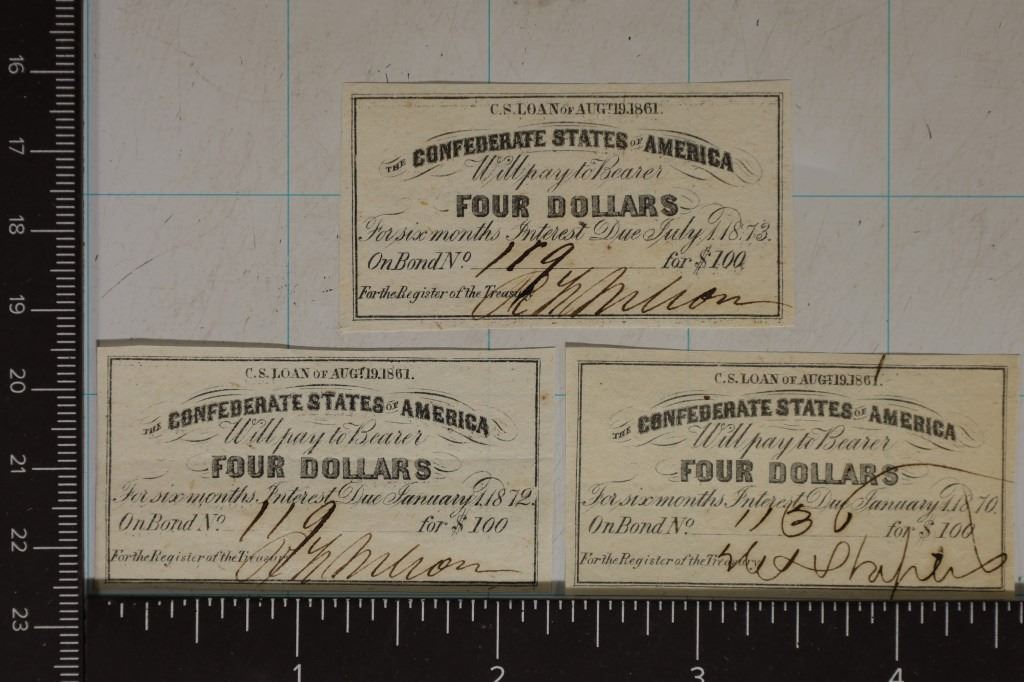 C.S. LOAN OF AUGT. 19.1861.
THE CONFEDERATE STATES OF AMERICA
Will pay to Bearer
FOUR DOLLARS
For six months Interest Due July 1. 1873.
On Bond No. 119 for $100
For the Register of the Treasury
C.S. LOAN OF AUGT. 19.1861.
THE CONFEDERATE STATES OF AMERICA
Will pay to Bearer
FOUR DOLLARS
For six months Interest Due January 1. 1872.
On Bond No. 119 for $100
For the Register of the Treasury
C.S. LOAN OF AUGT. 19.1861.
THE CONFEDERATE STATES OF AMERICA
Will pay to Bearer
FOUR DOLLARS
For six months Interest Due January 1. 1870.
On Bond No. 1136 for $100
For the Register of the Treasury
16
17
18
19
20
21
22
23
1 2 3 4